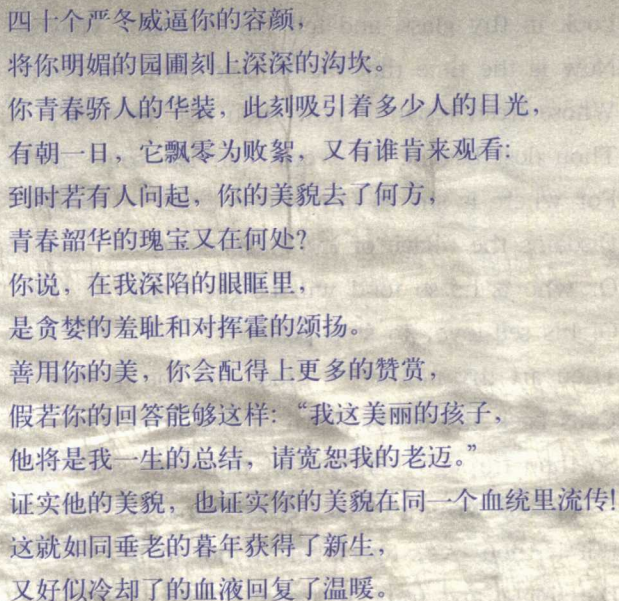 四十个严冬威逼你的容颜，
将你明媚的园圃刻上深深的沟坎。
你青春骄人的华装，此刻吸引着多少人的目光，
有朝一日，它飘零为败絮，又有谁肯来观看：
到时若有人问起，你的美貌去了何方，
青春韶华的瑰宝又在何处？
你说，在我深陷的眼眶里，
是贪婪的羞耻和对挥霍的颂扬。
善用你的美，你会配得上更多的赞赏，
假若你的回答能够这样：“我这美丽的孩子，
他将是我一生的总结，请宽恕我的老迈。”
证实他的美貌，也证实你的美貌在同一个血统里流传！
这就如同垂老的暮年获得了新生，
又好似冷却了的血液回复了温暖。